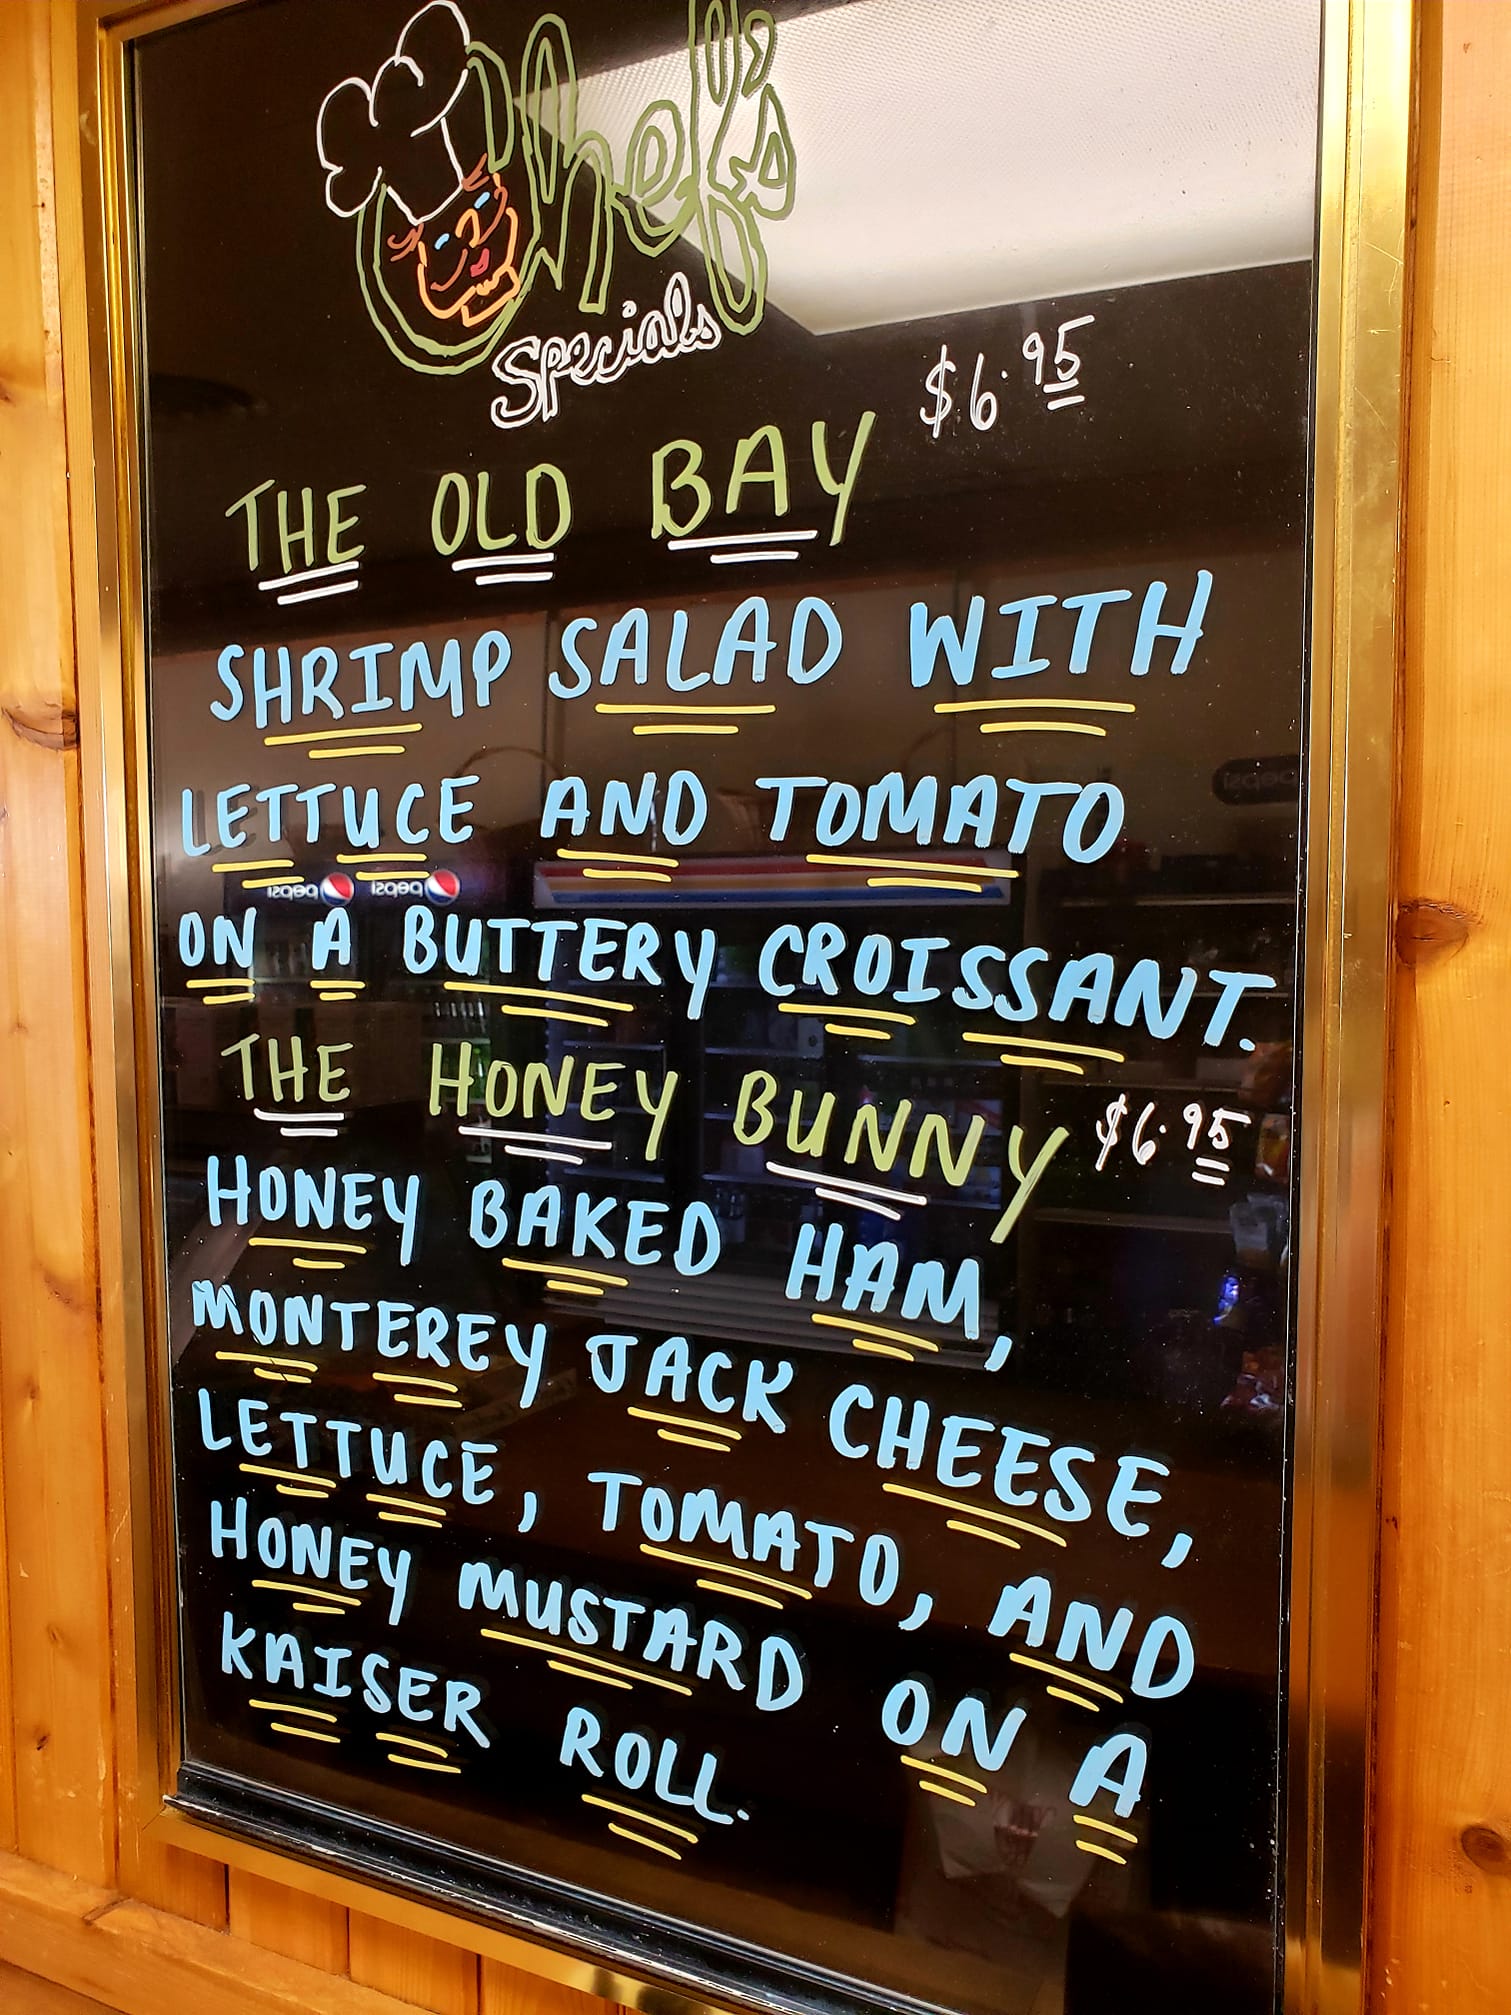 Chef's
Specials
$6.95
THE OLD BAY
SHRIMP SALAD WITH
LETTUCE AND TOMATO
pepsi pepsi
ON A BUTTERY CROISSANT.
THE HONEY BUNNY $6.95
HONEY BAKED HAM,
MONTEREY JACK CHEESE,
LETTUCE, TOMATO, AND
HONEY MUSTARD ON A
KAISER ROLL.
pepsi